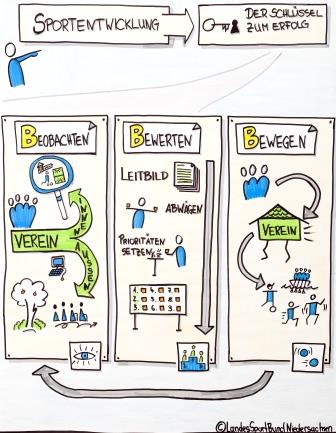 SPORTENTWICKLUNG
DER SCHLÜSSEL
ZUM ERFOLG
BEOBACHTEN
INNEN
VEREIN
AUSSEN
BEWERTEN
LEITBILD
ABWÄGEN
PRIORITÄTEN
SETZEN
1. 4. 7.
2. 5. 8.
3. 6. 9.
BEWEGEN
VEREIN
©LandesSportBundNiedersachsen